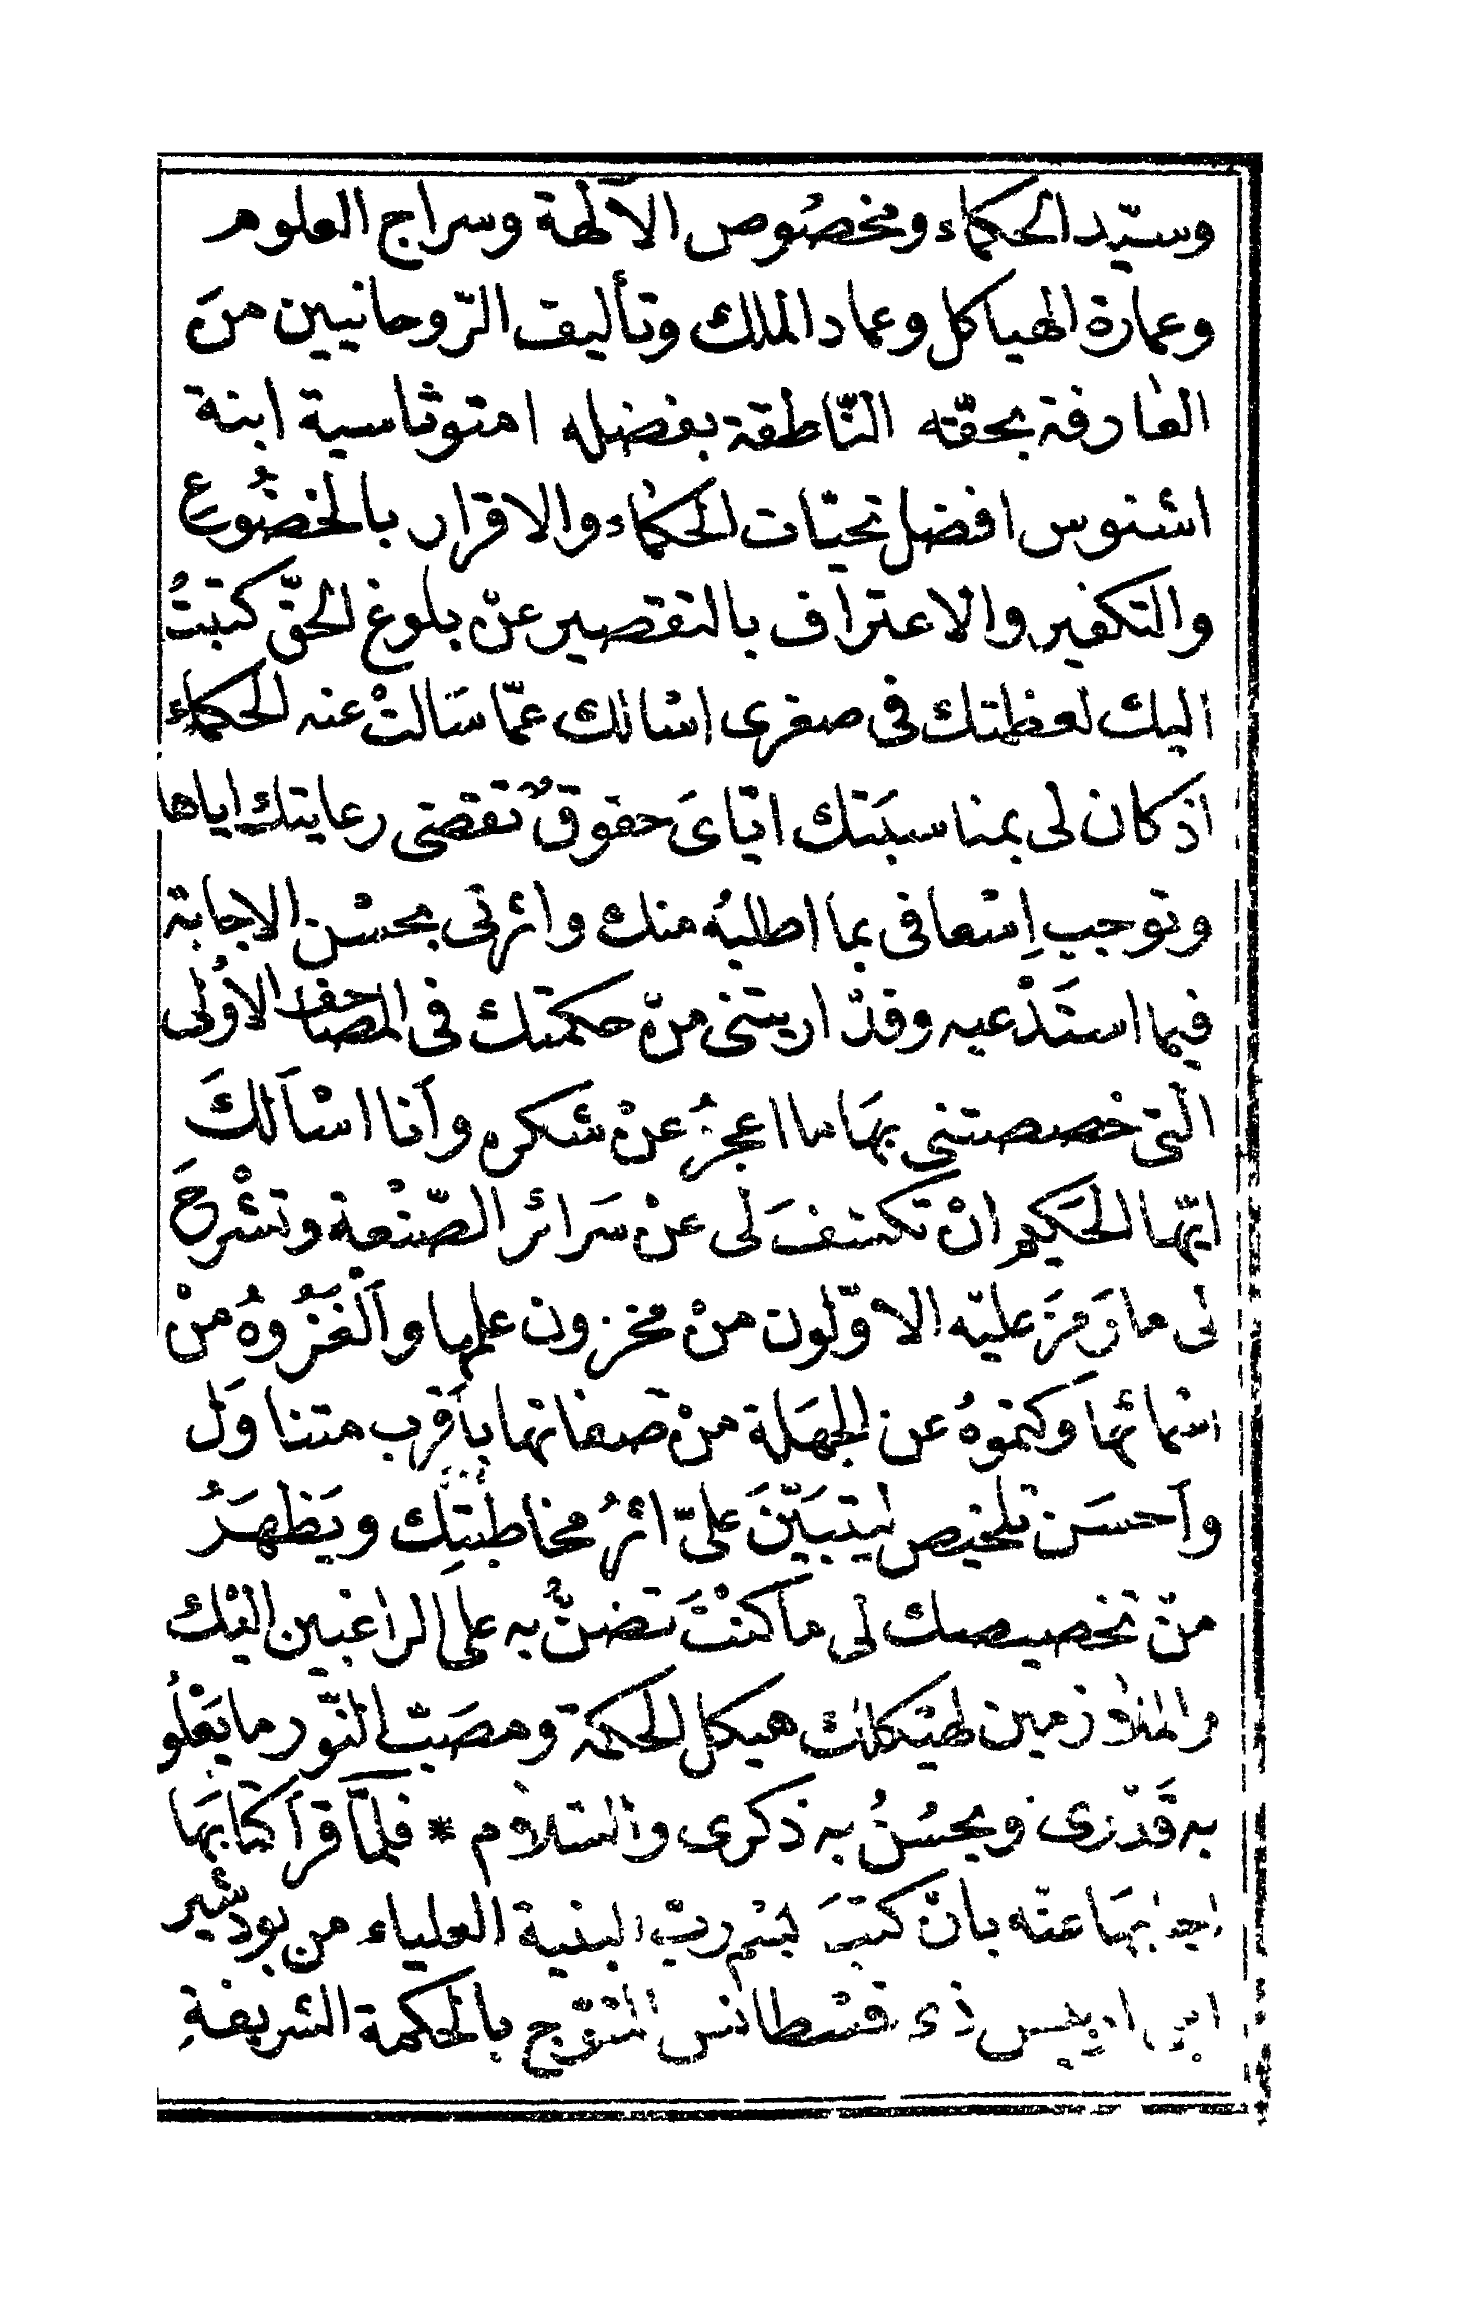 وسيّد الحكماء ومخصُوص الآلهة وسراج العلوم
وعمارة الهياكل وعماد الملك وتأليف الرّوحانيين منَ
العارفة بحقّه الناطقة بفضله امتوثاسية ابنة
اشنوس افضل تحيّات الحكماء والاقرار بالخضُوعِ
والتكفير والاعتراف بالتقصير عنْ بلوغ الحقّ كتبتُ
اليك لعظمتك في صغرى اسْالك عمّا سَالتْ عنه الحكماء
اذ كان لى بمناسبَتك ايّاىَ حقوقٌ تقضى رعايتك اياها
وتوجب اِسْعافى بما اطلبُه منك واثرتى بحسْن الاجابة
فيما استَدْعيه وقدْ اريتنى منْ حكمتك فى المصاحف الاُولى
الّتى خصصتنى بهَا ما اعجزُ عنْ شكره وَانا اسْاَلكَ
ايّها الحَكيم انْ تكشفَ لى عنْ سَرائر الصّنْعة وتشْرحَ
لى ما رَمزَ عليْه الاوّلون منْ مخزون علمها واَلْغَزُوهُ منْ
اسْمائها وَكتموهُ عن الجهَلة منْ صفاتها باَقرب متناوَل
واَحسَن تلخيص ليتبَيّنَ علىّ اثرُ مخاطبتِك ويَظهَرُ
منْ تخصيصك لى ما كنْتَ تضنُّ به على الراغبين اليْك
والملازمين لهيْكلك هيكل الحكمة ومصَبّ النّور ما يَعْلُو
به قَدْرى ويحسُنُ به ذكرى والسّلام * فلمّا قرأ كتابَها
اجابهَا عنْه بانْ كتبَ بسْم ربّ البنية العلياء من بودشير
ابن اد يس ذى قسْطانس المتوّج بالحكمة الشريفةِ